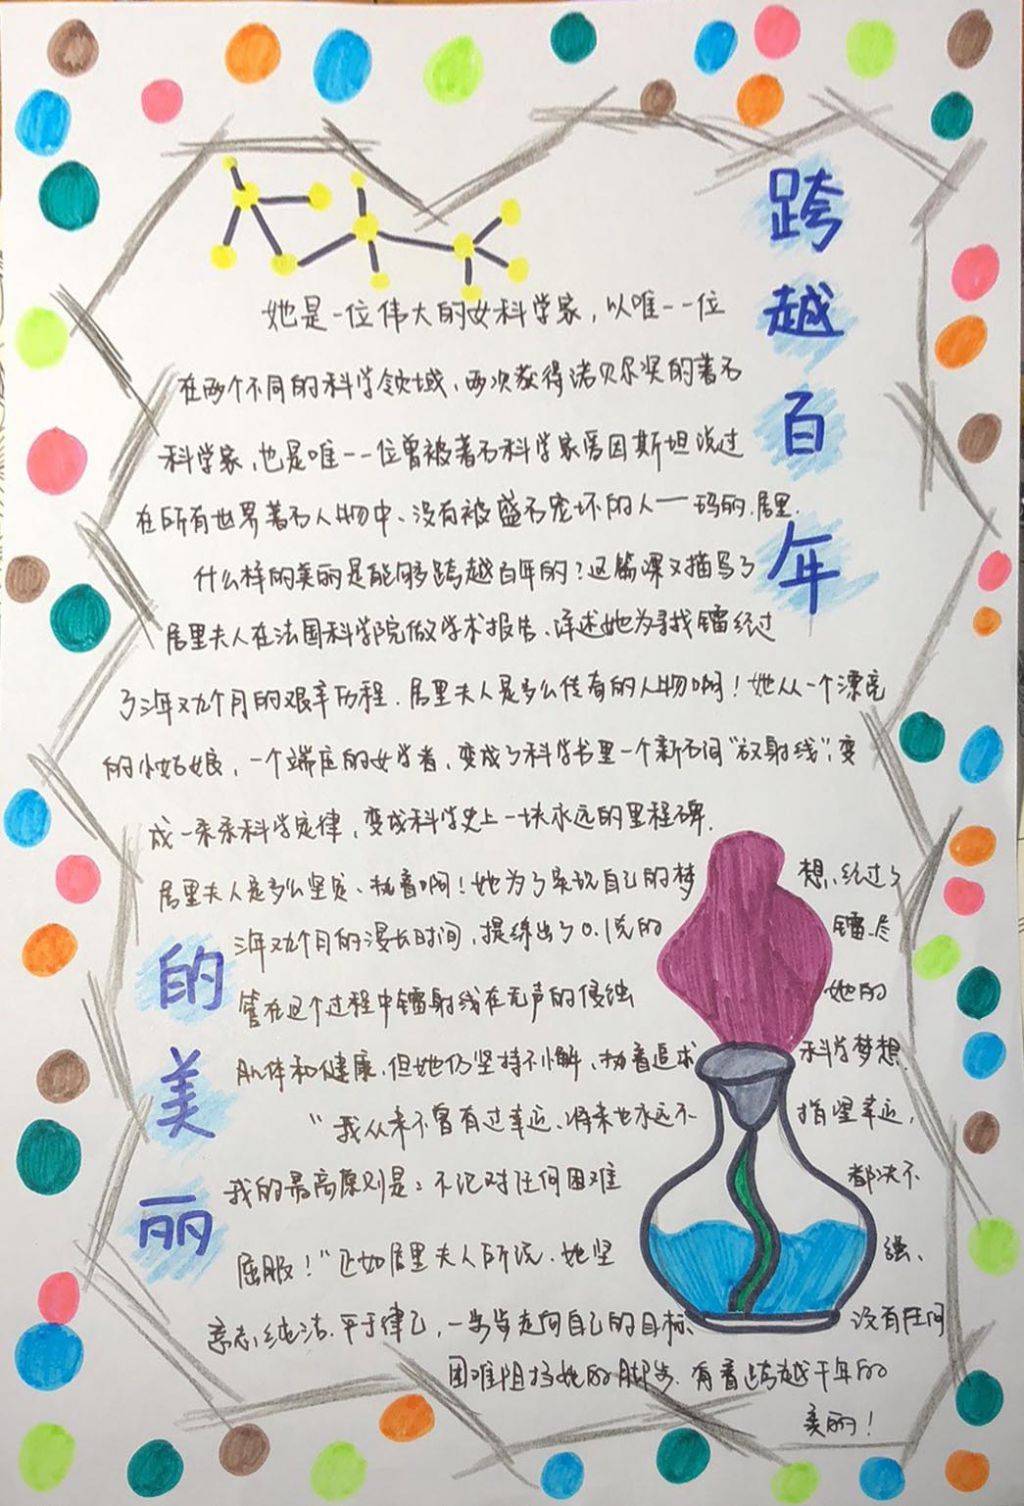 跨越百年
的美丽
她是一位伟大的女科学家，以唯一一位
在两个不同的科学领域、两次获得诺贝尔奖的著名
科学家，也是唯一一位曾被著名科学家爱因斯坦说过
在所有世界著名人物中、没有被盛名宠坏的人——玛丽.居里.
什么样的美丽是能够跨越百年的？这篇课文描写了
居里夫人在法国科学院做学术报告、详述她为寻找镭经过
了三年又九个月的艰辛历程.居里夫人是多么传奇的人物啊！她从一个漂亮
的小姑娘，一个端庄的女学者，变成了科学书里一个新名词“放射线”，变
成一条条科学定律，变成科学史上一块永远的里程碑.
居里夫人是多么坚定、执着啊！她为了实现自己的梦想、经过了
三年又九个月的漫长时间，提练出了0.1克的镭.尽
管在这个过程中镭射线在无声的侵蚀她的
肌体和健康，但她仍坚持不懈、执着追求科学梦想.
“我从来不曾有过幸运、将来也永远不指望幸运，
我的最高原则是：不论对任何困难都决不
屈服！”正如居里夫人所说、她坚强、
意志纯洁.严于律己，一步步走向自己的目标、没有任何
困难阻挡她的脚步.有着跨越千年的
美丽！